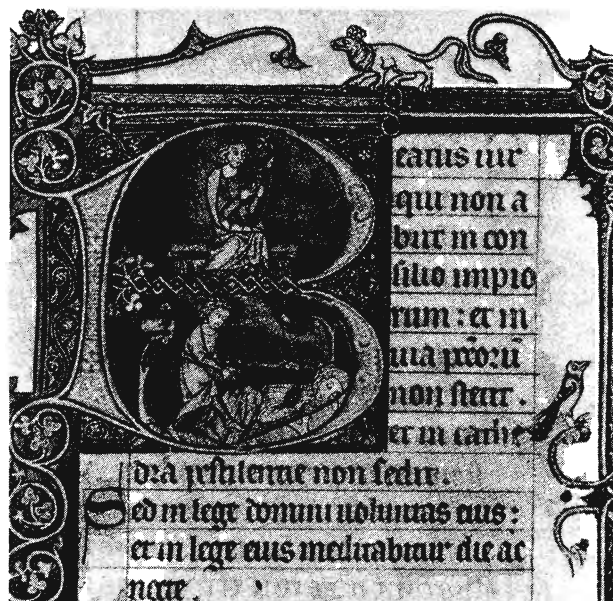 Beatus uir
qui non a
biit in con
silio impio
rum : et in
uia pcc̄orū
non stetit .
et in cathe
drā pestilentie non sedit .
Sed in lege domini uoluntas eius :
et in lege eius meditabitur die ac
nocte .